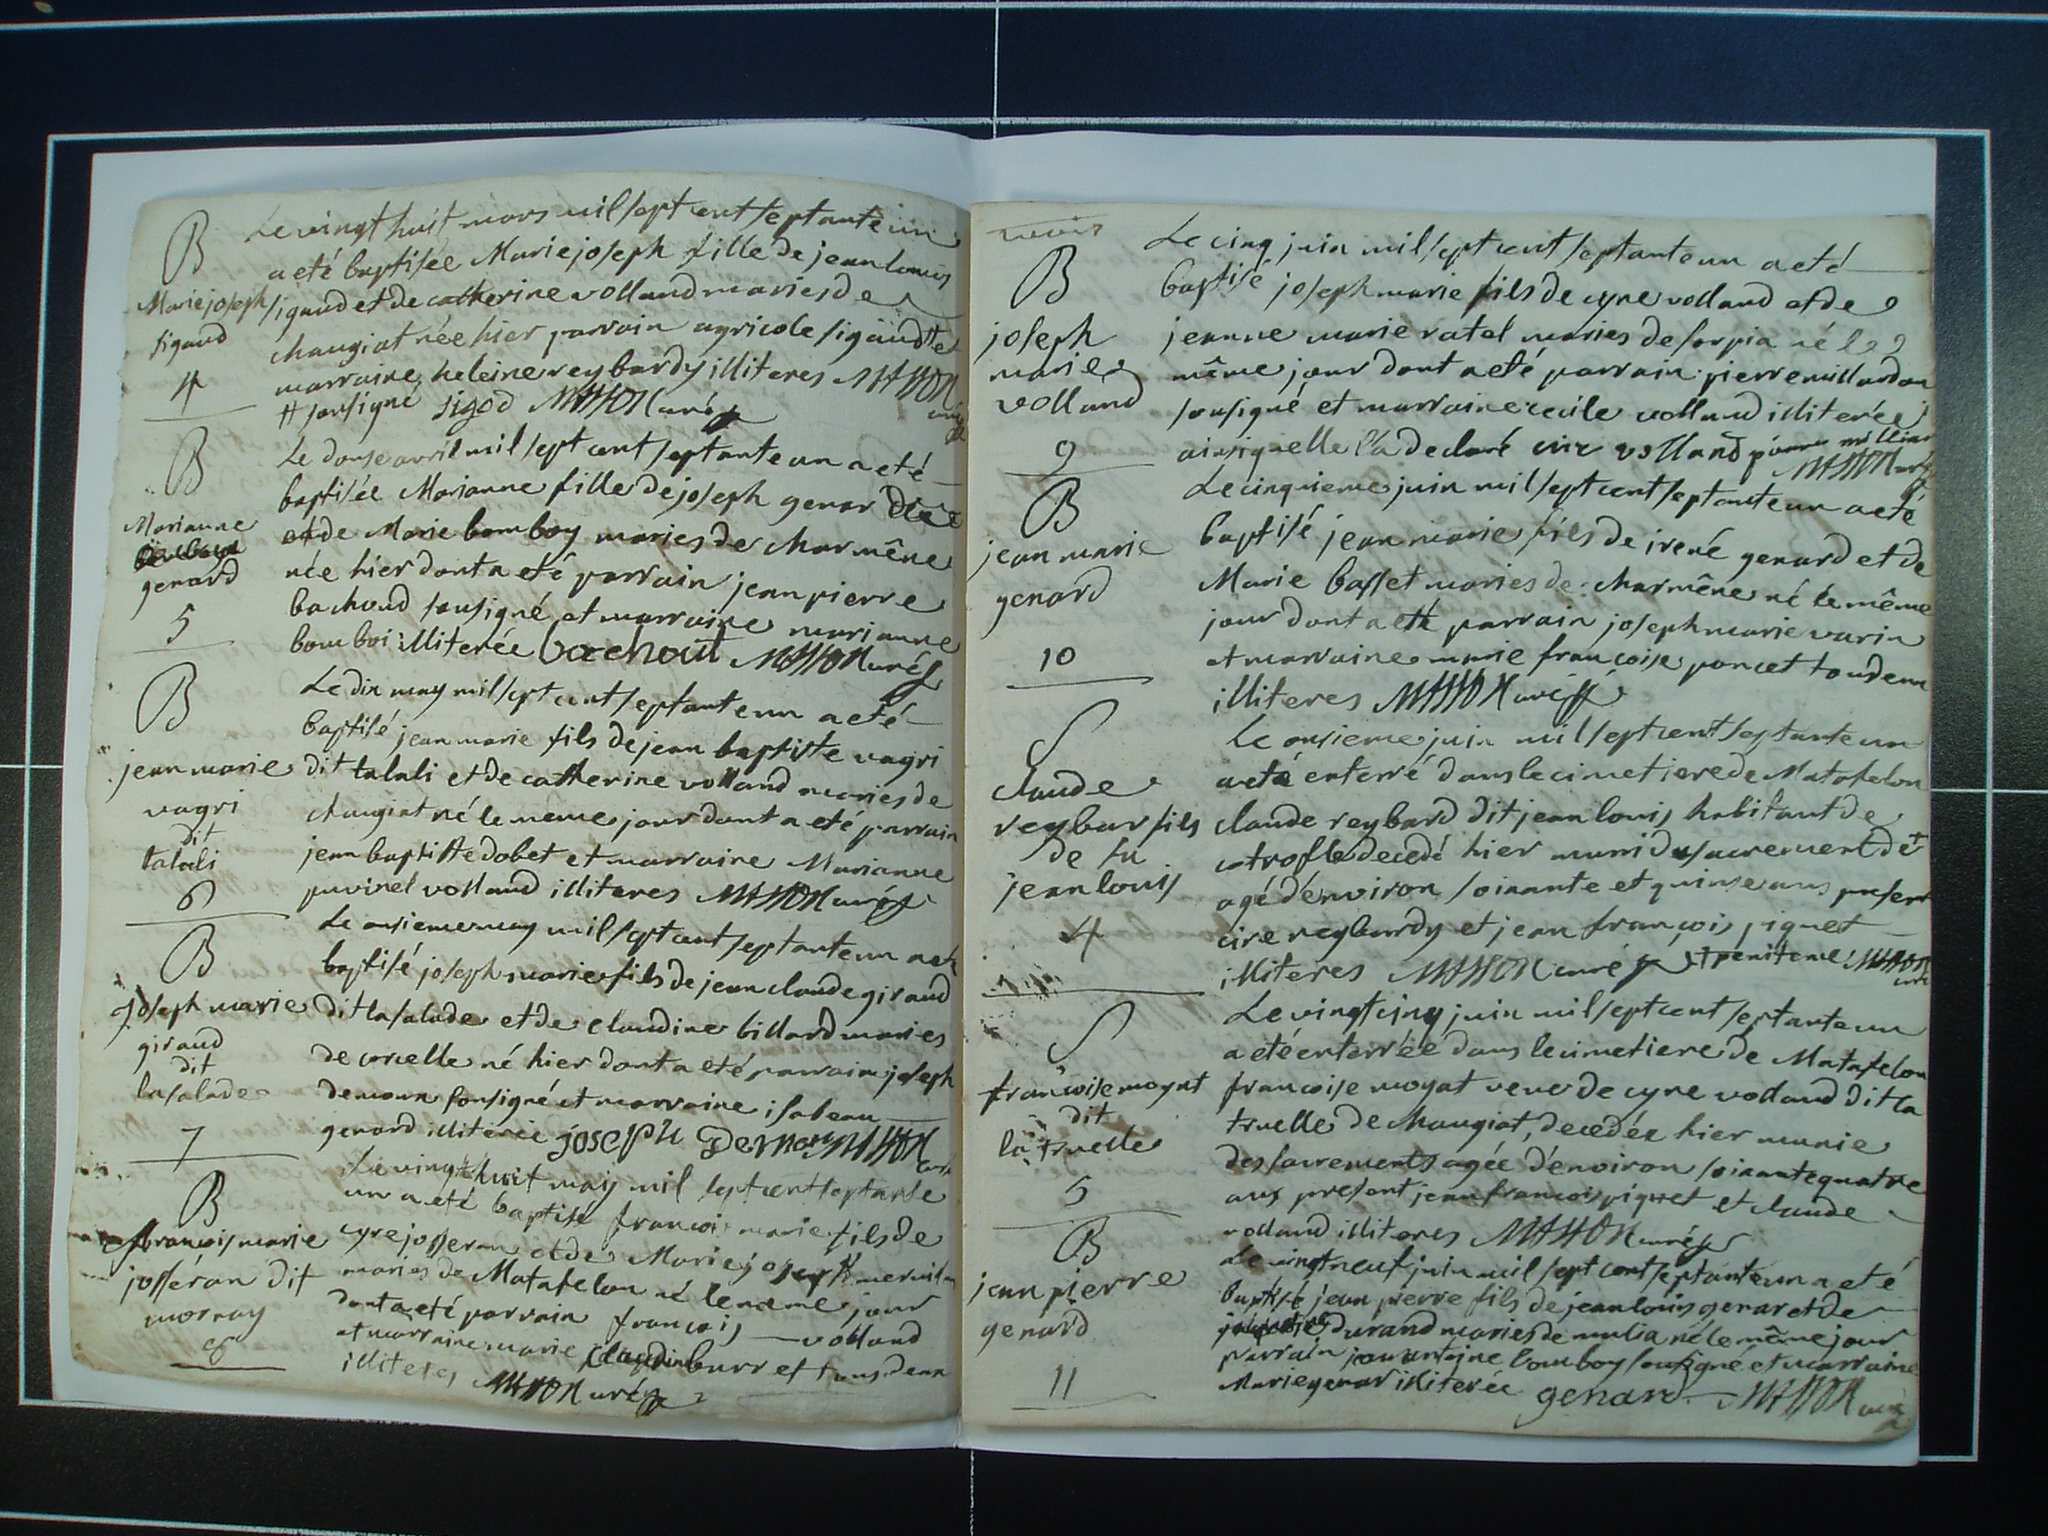 B
Marie joseph
sigaud
4
Le vingt huit mars mil sept cent septante un
a eté baptisée Marie joseph fille de jean louis
sigaud et de catherine volland mariés de
chaugiat née hier parrain agricole sigaud #
marraine heleine reybardy illiteres MASSON curé
# sousigné sigod MASSON curé
B
Marianne
genard
5
Le douse avril mil sept cent septante un a eté
baptisée Marianne fille de joseph genar
et de Marie bomboy mariés de charmêne
née hier dont a eté parrain jean pierre
bachoud sousigné et marraine marianne
bomboi illiterée bachout MASSON curé
B
jean marie
vagri
dit
talali
6
Le dix may mil sept cent septante un a eté
baptisé jean marie fils de jean baptiste vagri
dit talali et de catherine volland mariés de
chaugiat né le meme jour dont a eté parrain
jean baptiste dobet et marraine Marianne
volland illiteres MASSON curé
B
joseph marie
giraud
dit
lasalade
7
Le onsieme may mil sept cent septante un a eté
baptisé joseph marie fils de jean claude giraud
dit la salade et de claudine billard mariés
de corcelle né hier dont a eté parrain joseph
demorn sousigné et marraine isabeau
genard illiterée joseph MASSON curé
B
francois marie
josséran dit
mornay
8
Le vingt huit may mil sept cent septante
un a eté baptisé francois marie fils de
cyre josseran et de Marie joseph
mariés de Matafelon né le meme jour
dont a eté parrain francois volland
et marraine marie burr et tous deux
illiteres MASSON curé
B
joseph
marie
volland
9
Le cinq juin mil sept cent septante un a eté
baptisé joseph marie fils de cyre volland et de
jeanne marie ratal mariés de sorpia né le
même jour dont a eté parrain pierre millardon
sousigné et marraine cecile volland illiterée
ainsi quelle l'a declaré cire volland MASSON curé
B
jean marie
genard
10
Le cinquieme juin mil sept cent septante un a eté
baptisé jean marie fils de irené genard et de
Marie basset mariés de charmêne né le même
jour dont a eté parrain joseph marie varin
et marraine marie francoise poncet tou deux
illiteres MASSON curé
S
claude
reybar fils
de fu
jean louis
4
Le onsieme juin mil sept cent septante un
a eté enterré dans le cimetiere de Matafelon
claude reybard dit jean louis habitant de
cotrofle decedé hier muni du sacrement de +
agé d'environ soixante et quinse ans present
cire reybardy et jean françois piquet
illiteres MASSON curé + penitence MASSON curé
S
francoise moyat
dit
la truelle
5
Le vingt cinq juin mil sept cent septante un
a eté enterrée dans le cimetiere de Matafelon
francoise moyat veuve de cyre volland dit la
truelle de chaugiat, decedée hier munie
des sacrements agée d'environ soixante quatre
ans present jean francois piquet et claude
volland illiteres MASSON curé
B
jean pierre
genard
11
Le vingt neuf juin mil sept cent septante un a eté
baptisé jean pierre fils de jean louis genar et de
durand mariés de mulia né le même jour
parrain jean antoine bomboy sousigné et marraine
Marie genar illiterée genard MASSON curé